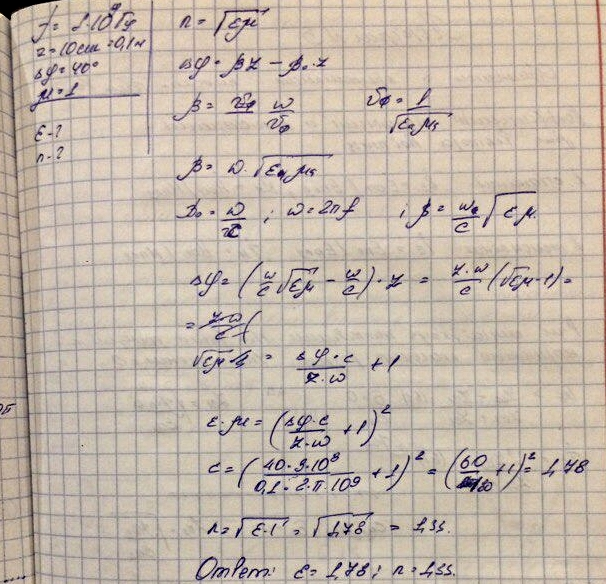 f = 1·10⁹ Гц
z = 10см = 0,1м
Δφ = 40°
μ = 1
ε-?
n-?
n = √εμ
Δφ = βz − β₀·z
β = ω/vφ vφ = 1/√(εₐμₐ)
β = ω·√(εₐμₐ)
β₀ = ω/c ; ω = 2πf ; β = ω/c √εμ
Δφ = (ω/c √εμ − ω/c)·z = z·ω/c (√εμ − 1) =
= z·ω/c (
√εμ = Δφ·c/z·ω + 1
ε·μ = (Δφ·c/z·ω + 1)²
ε = (40·3·10⁸/0,1·2·π·10⁹ + 1)² = (60/180 + 1)² = 1,78
n = √ε·1 = √1,78 = 1,33.
Ответ: ε = 1,78; n = 1,33.